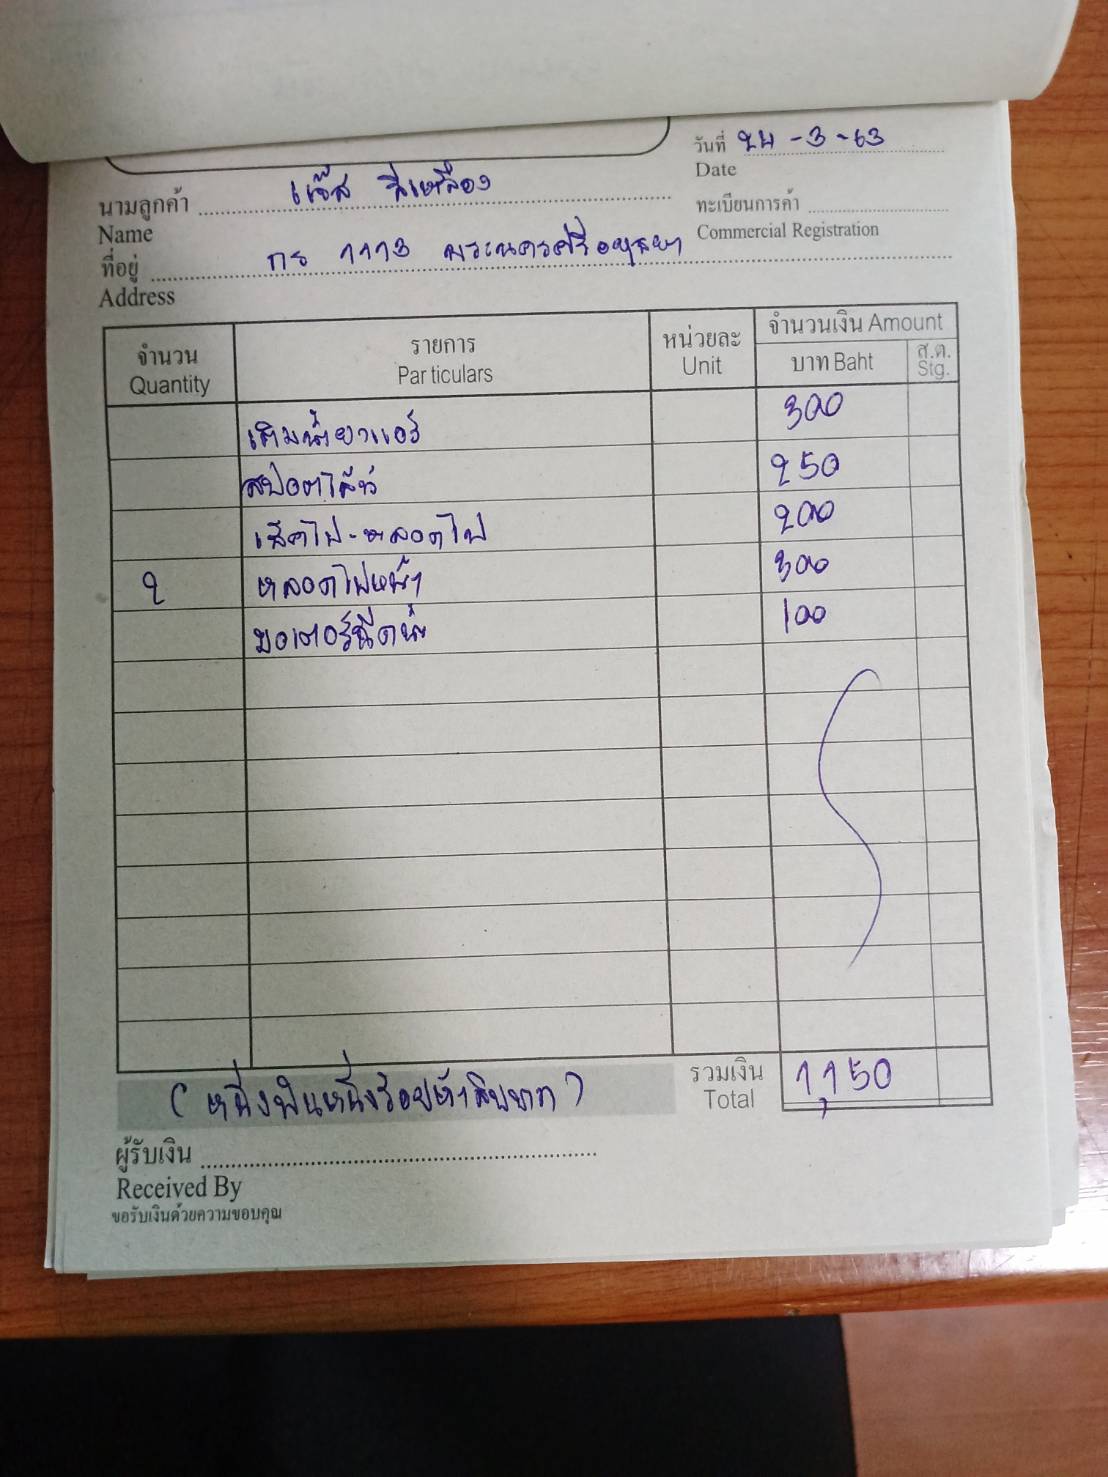 วันที่ 24-3-63
Date
นามลูกค้า แจ๊ส สีเหลือง
Name
ทะเบียนการค้า
Commercial Registration
ที่อยู่ กธ 1113 พระนครศรีอยุธยา
Address
จำนวน รายการ หน่วยละ จำนวนเงิน Amount
Quantity Particulars Unit บาท Baht ส.ต. Stg.
เติมน้ำยาแอร์ 300
สปอตไลน์ 250
เช็คไฟ-หลอดไฟ 200
2 หลอดไฟหน้า 300
มอเตอร์ฉีดน้ำ 100
(หนึ่งพันหนึ่งร้อยห้าสิบบาท) รวมเงิน 1,150
Total
ผู้รับเงิน
Received By
ขอรับเงินด้วยความขอบคุณ